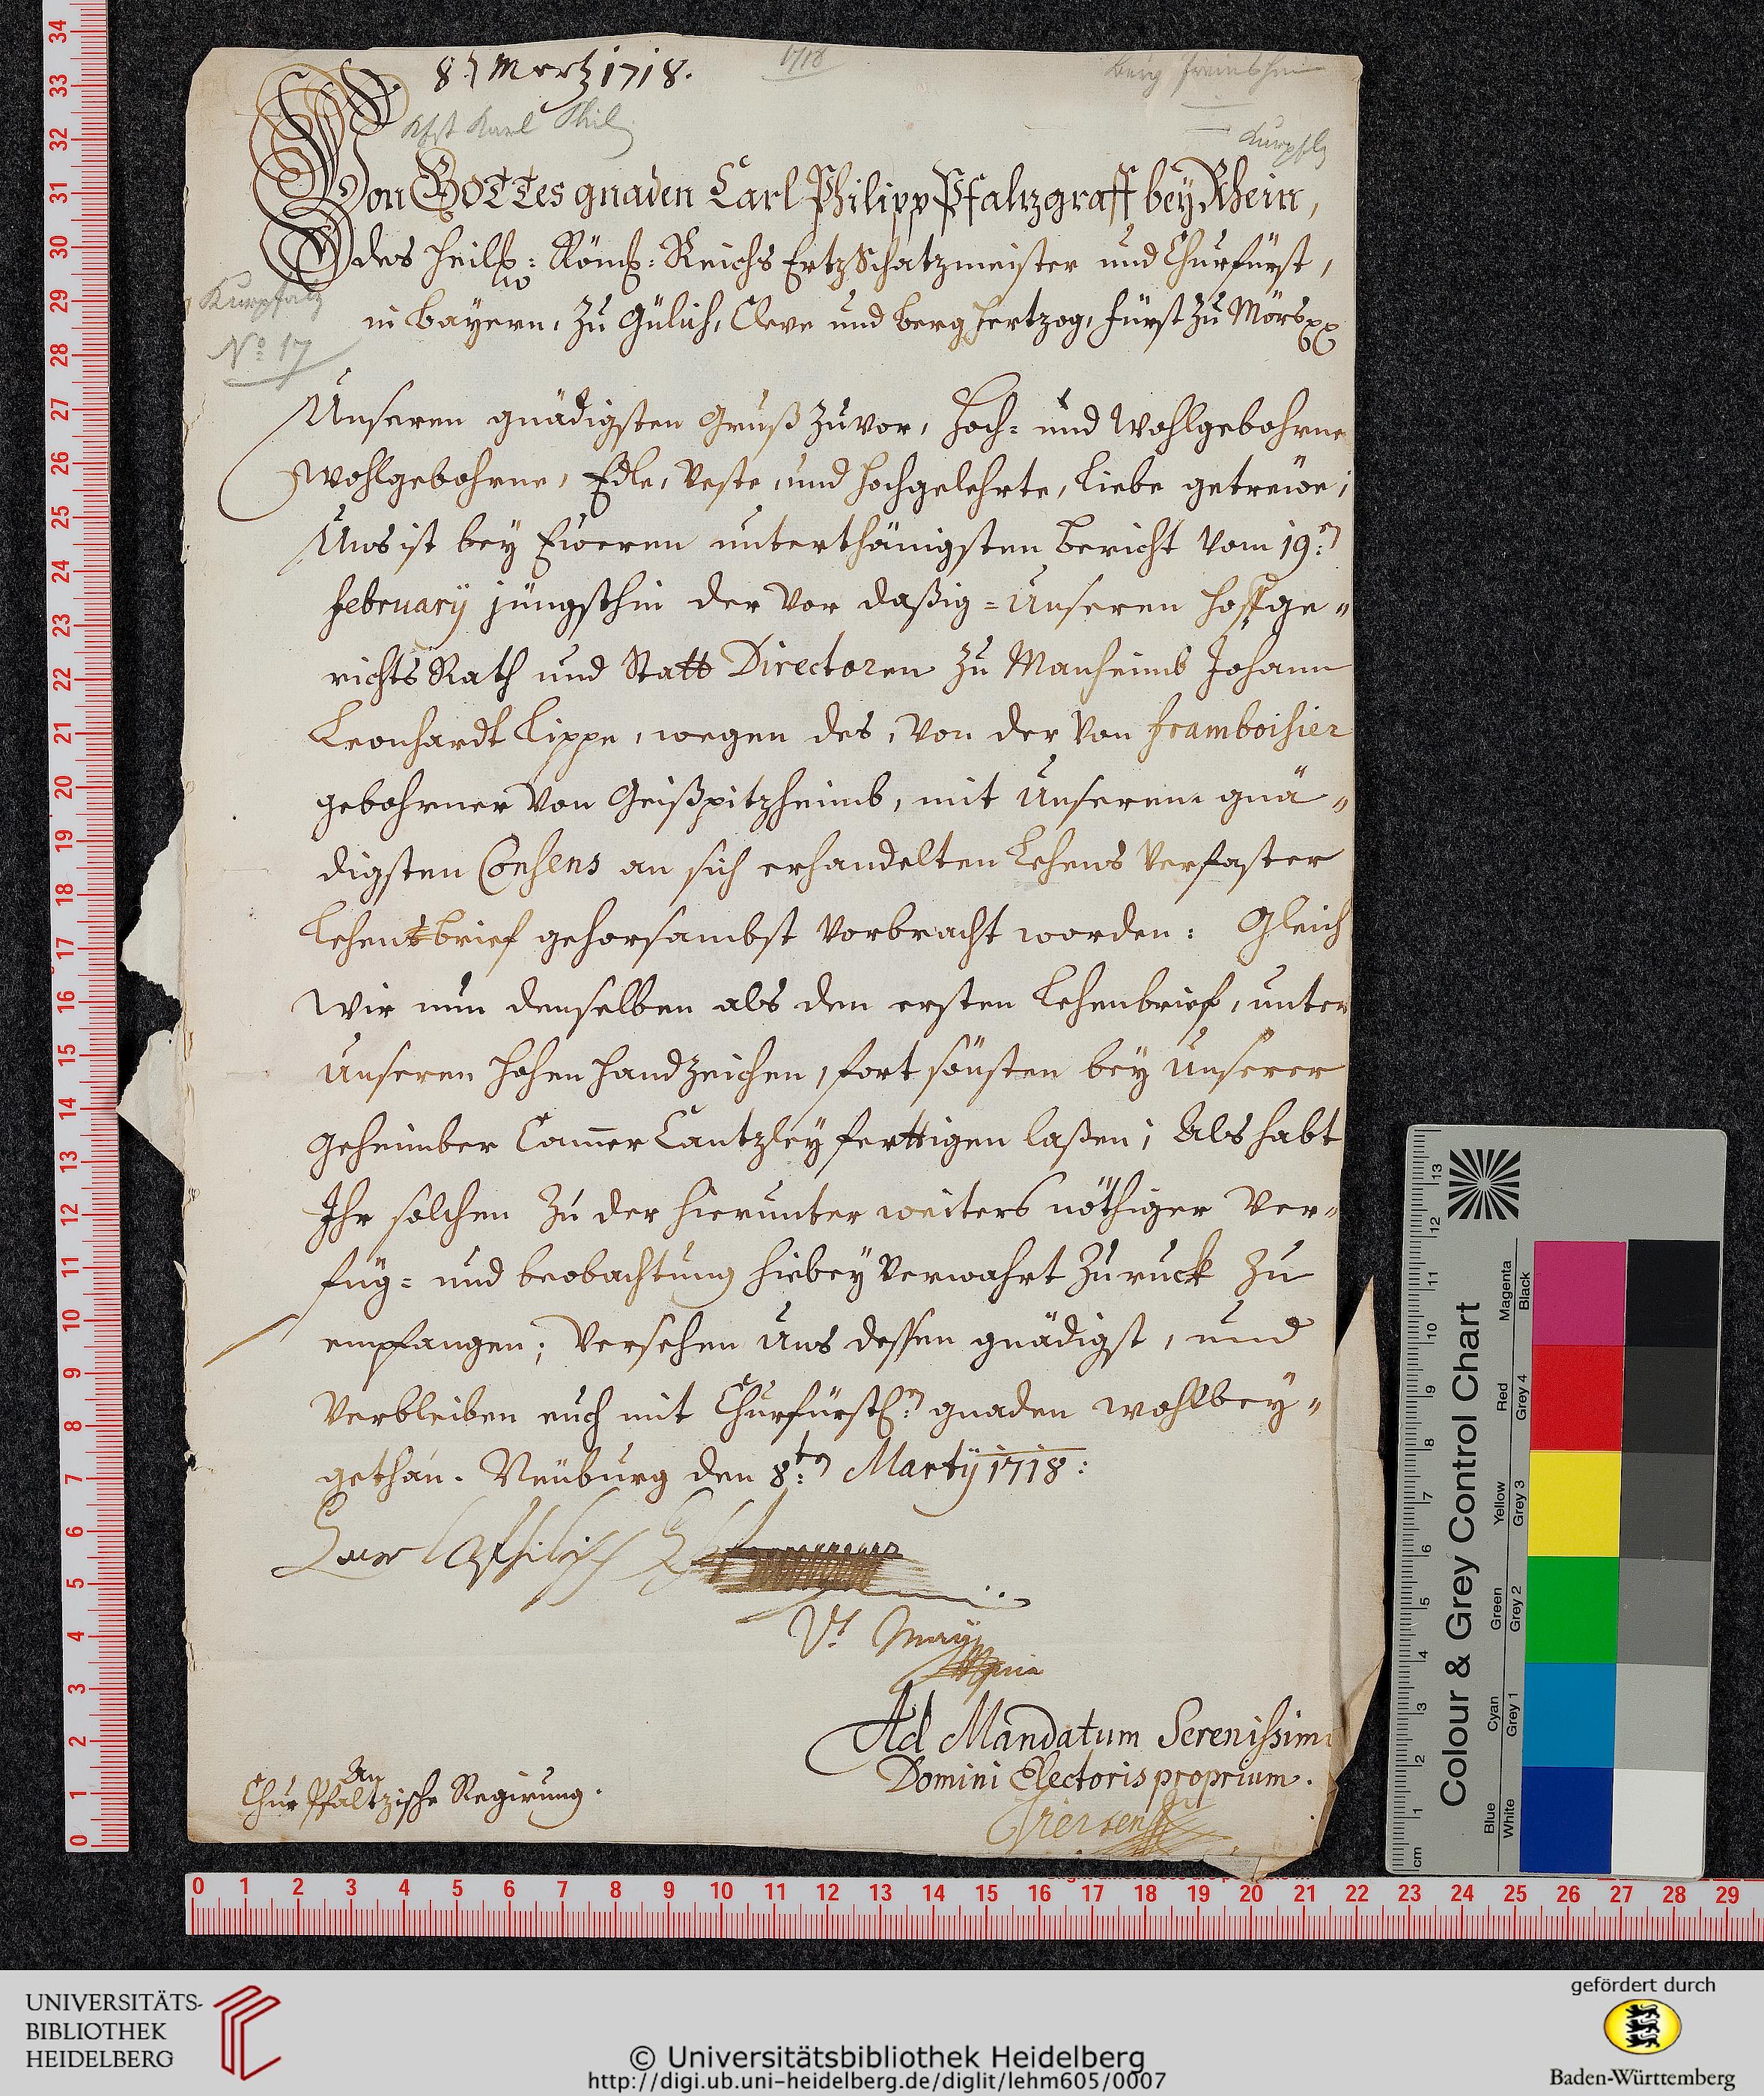 8. Mertz 1718.
1718
Kfst Karl Phil
Kurpflz
Von GOTTes gnaden Carl Philipp Pfaltzgraff bey Rhein,
des Heilg: Römß: Reichs ErtzSchatzmeister und Churfürst,
in Bayern, zu Gülich, Cleve und Berg Hertzog, Fürst zu Mörs
Kurpfalz
No 17
Unseren gnädigsten Gruß zuvor, Hoch- und Wohlgebohrne
Wohlgebohrne, Edle, Veste, und Hochgelehrte, Liebe getreüe;
Uns ist bey Eweren unterthänigsten Bericht vom 19n:
February jüngsthin der vor daßig-Unseren Hoffge"
richts Rath und Statt Directoren zu Manheimb Johann
Leonhardt Lippe, wegen des, von der von Framboisier
gebohrner von Geißpitzheimb, mit Unserem gnä"
digsten Consens an sich erhandelten Lehens verfaster
Lehensbrief gehorsambst vorbracht worden: Gleich
Wir nun denselben als den ersten Lehenbrief, unter
Unseren Hohen Handzeichen, fort sönsten bey Unserer
Geheimber Cam̄er Cantzley fertigen laßen; Als habt
Ihr solchen zu der hierunter weiters nöthiger Ver"
füg- und beobachtung hiebey verwahrt zuruck zu
empfangen; Versehen Uns dessen gnädigst, und
Verbleiben euch mit Churfürstl:n gnaden wohlbey"
gethan. Neüburg den 8ten Martÿ 1718:
Carl Philipp
Vt
Ad Mandatum Serenissimi
Domini Electoris proprium.
An
Chur Pfaltzische Regirung.
34
33
32
31
30
29
28
27
26
25
24
23
22
21
20
19
18
17
16
15
14
13
12
11
10
9
8
7
6
5
4
3
2
1
0
0 1 2 3 4 5 6 7 8 9 10 11 12 13 14 15 16 17 18 19 20 21 22 23 24 25 26 27 28 29
Colour & Grey Control Chart
Blue Cyan Green Yellow Red Magenta
White Grey 1 Grey 2 Grey 3 Grey 4 Black
cm 1 2 3 4 5 6 7 8 9 10 11 12 13
UNIVERSITÄTS-
BIBLIOTHEK
HEIDELBERG
© Universitätsbibliothek Heidelberg
http://digi.ub.uni-heidelberg.de/diglit/lehm605/0007
gefördert durch
Baden-Württemberg